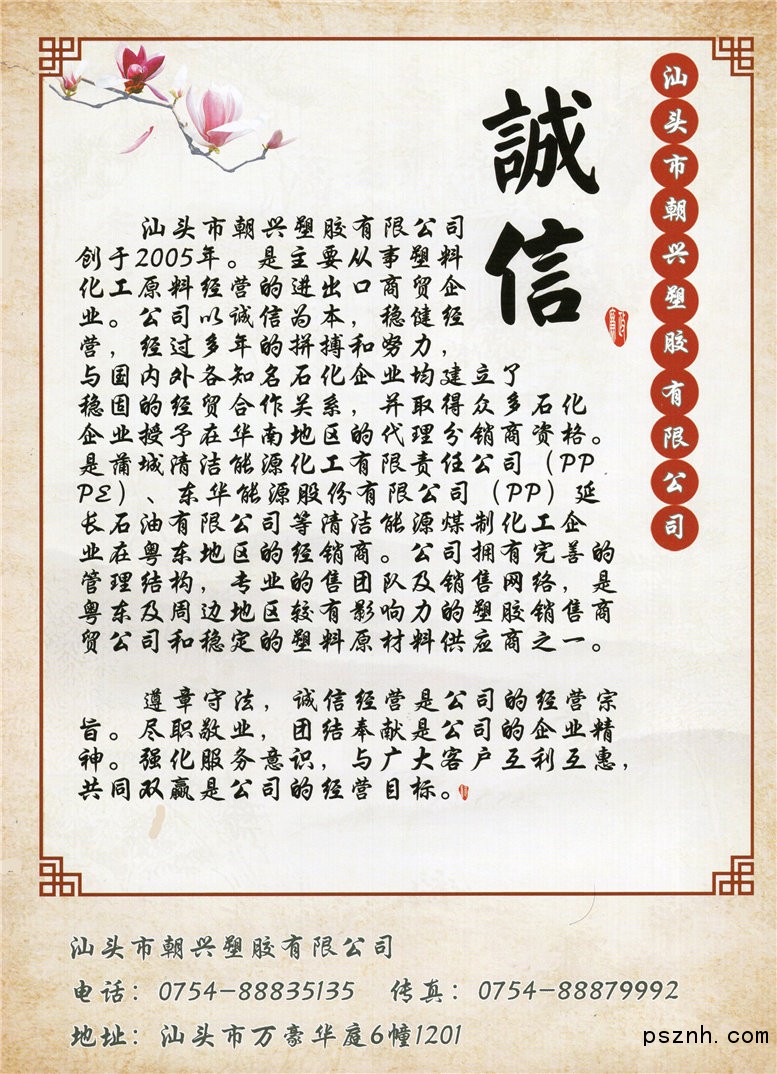 汕头市朝兴塑胶有限公司
誠信
汕头市朝兴塑胶有限公司
创于2005年。是主要从事塑料
化工原料经营的进出口商贸企
业。公司以诚信为本，稳健经
营，经过多年的拼搏和努力，
与国内外各知名石化企业均建立了
稳固的经贸合作关系，并取得众多石化
企业授予在华南地区的代理分销商资格。
是蒲城清洁能源化工有限责任公司（PP
PE）、东华能源股份有限公司（PP）延
长石油有限公司等清洁能源煤制化工企
业在粤东地区的经销商。公司拥有完善的
管理结构，专业的售团队及销售网络，是
粤东及周边地区较有影响力的塑胶销售商
贸公司和稳定的塑料原材料供应商之一。
遵章守法，诚信经营是公司的经营宗
旨。尽职敬业，团结奉献是公司的企业精
神。强化服务意识，与广大客户互利互惠，
共同双赢是公司的经营目标。
汕头市朝兴塑胶有限公司
电话：0754-88835135 传真：0754-88879992
地址：汕头市万豪华庭6幢1201
psznh.com